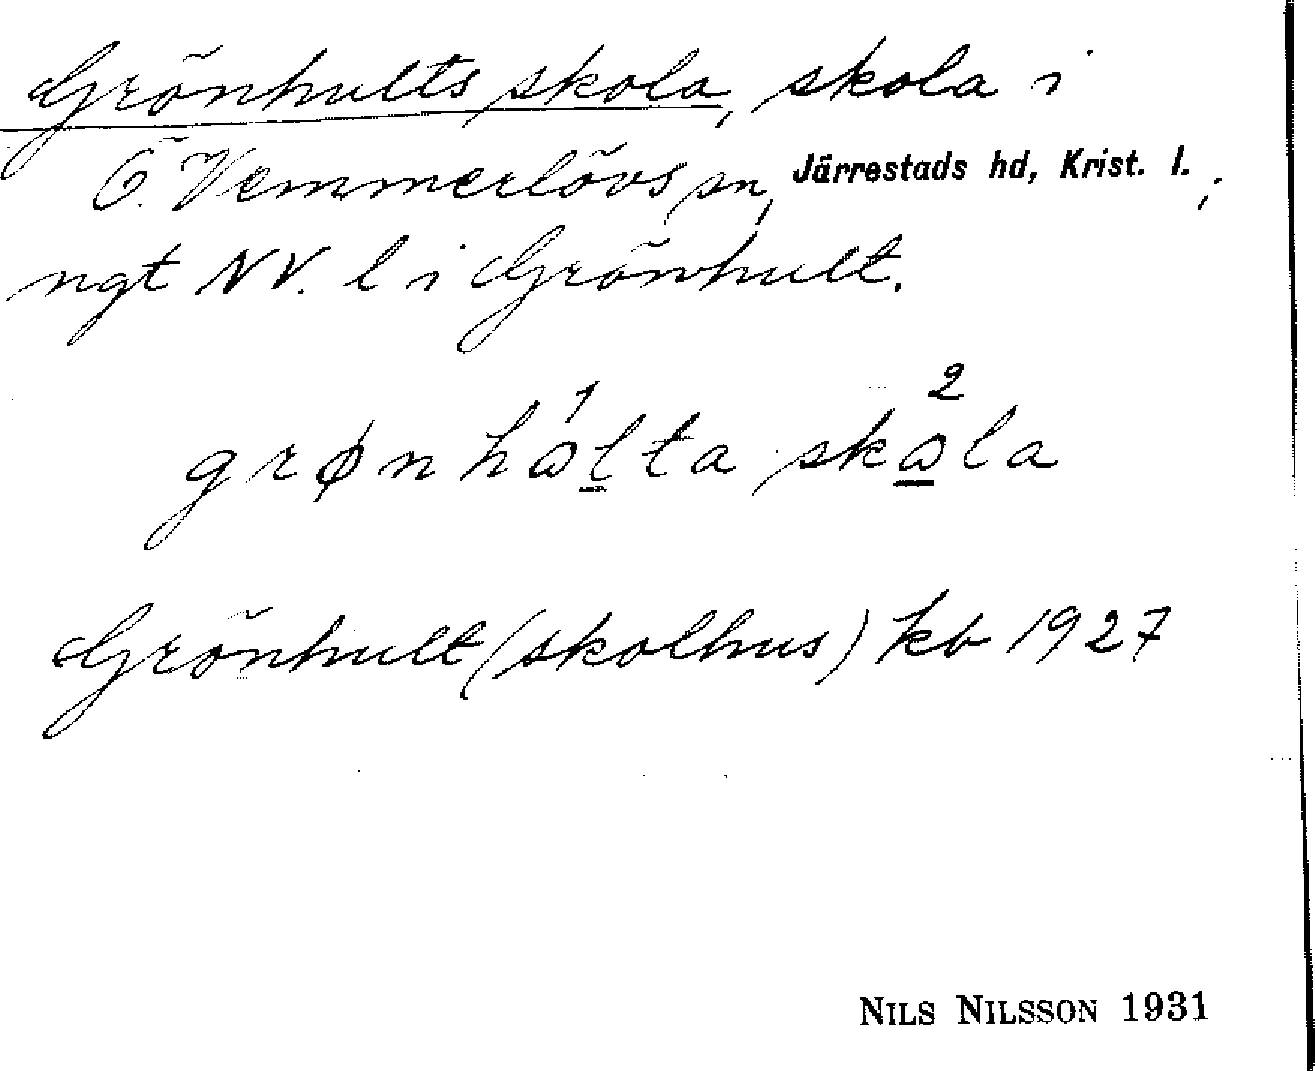 Grönhults skola, skola i
Ö. Vemmerlövs sn, Järrestads hd, Krist. l.;
ngt NV. l i Grönhult.
grønhω¹l̲ta skω̲²la
Grönhult (skolhus) kb 1927
NILS NILSSON 1931